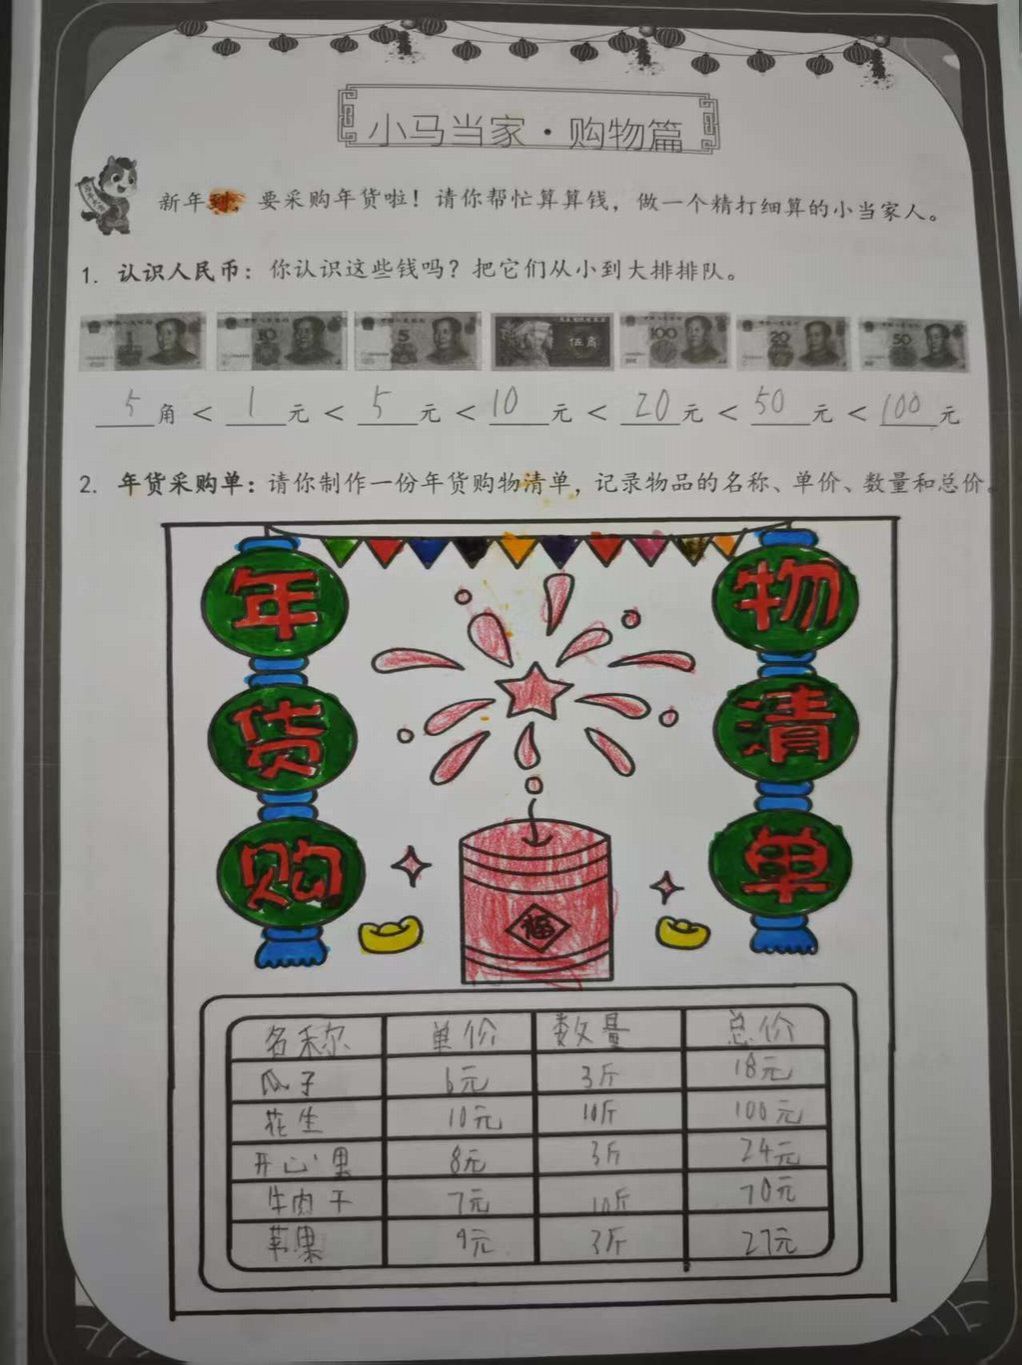 小马当家·购物篇
新年到，要采购年货啦！请你帮忙算算钱，做一个精打细算的小当家人。
1. 认识人民币：你认识这些钱吗？把它们从小到大排排队。
1 10 5 伍角 100 20 50
5角＜1元＜5元＜10元＜20元＜50元＜100元
2. 年货采购单：请你制作一份年货购物清单，记录物品的名称、单价、数量和总价。
年货购
物清单
福
名称 单价 数量 总价
瓜子 6元 3斤 18元
花生 10元 10斤 100元
开心果 8元 3斤 24元
牛肉干 7元 10斤 70元
苹果 9元 3斤 27元